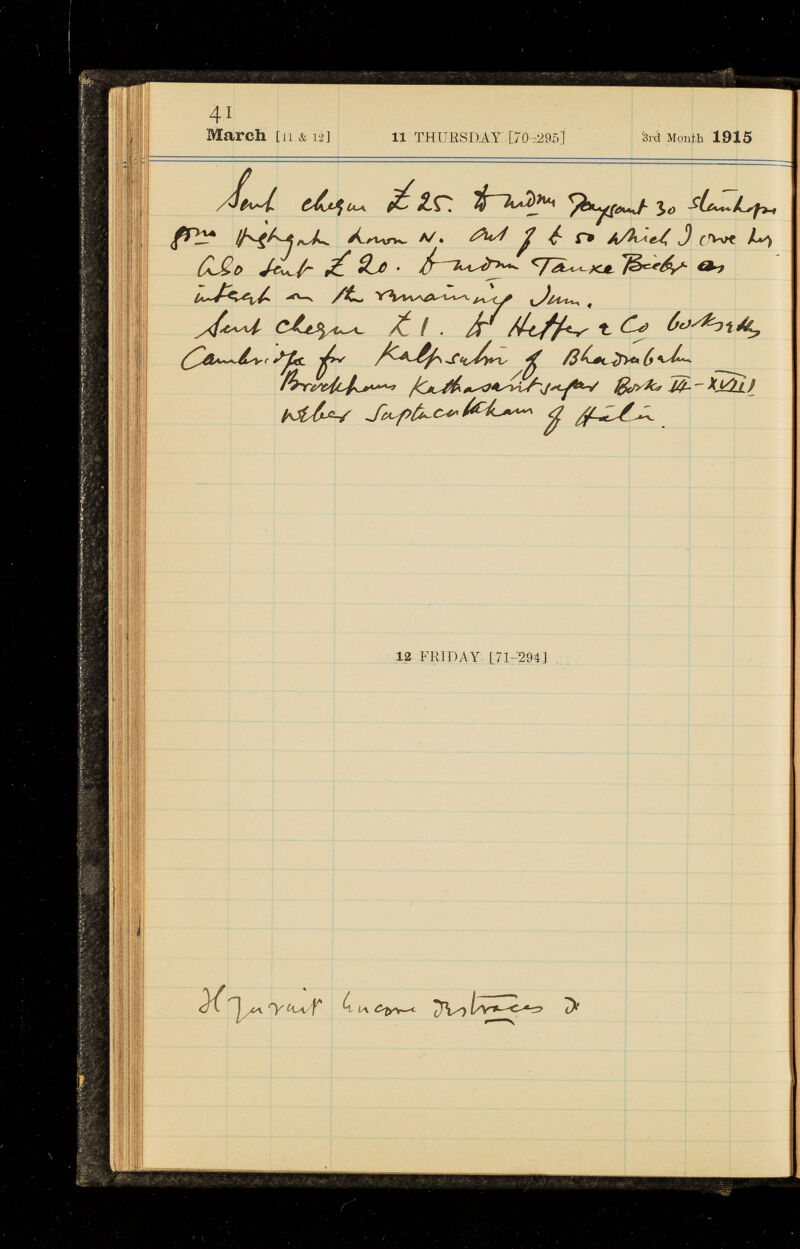 41
March [11 & 12] 11 THURSDAY [70-295] 3rd Month 1915
Sent cheque £ 25. to mdme 30 Stanhope
Highgate N. Out of £ 50 which I owe her
Also sent £ 20. to mdm as
interest on the remaining sum.
Sent cheque £ 1. to Heffer & Co booksellers
Cambridge for Kalpsutra of Bhadrabahu
Brockhaus Kathasaritsagar Books VI-XVIII
Weber Saptacatakam of Hāla.
12 FRIDAY [71-294]